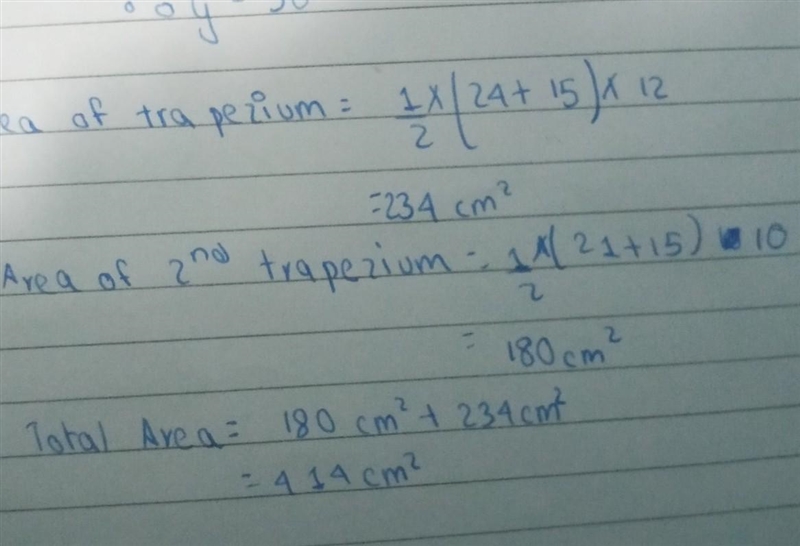 ea of trapezium = 1/2 x (24 + 15) x 12
= 234 cm²
Area of 2nd trapezium = 1/2 x (21 + 15) 10
= 180 cm²
Total Area = 180 cm² + 234 cm²
= 414 cm²